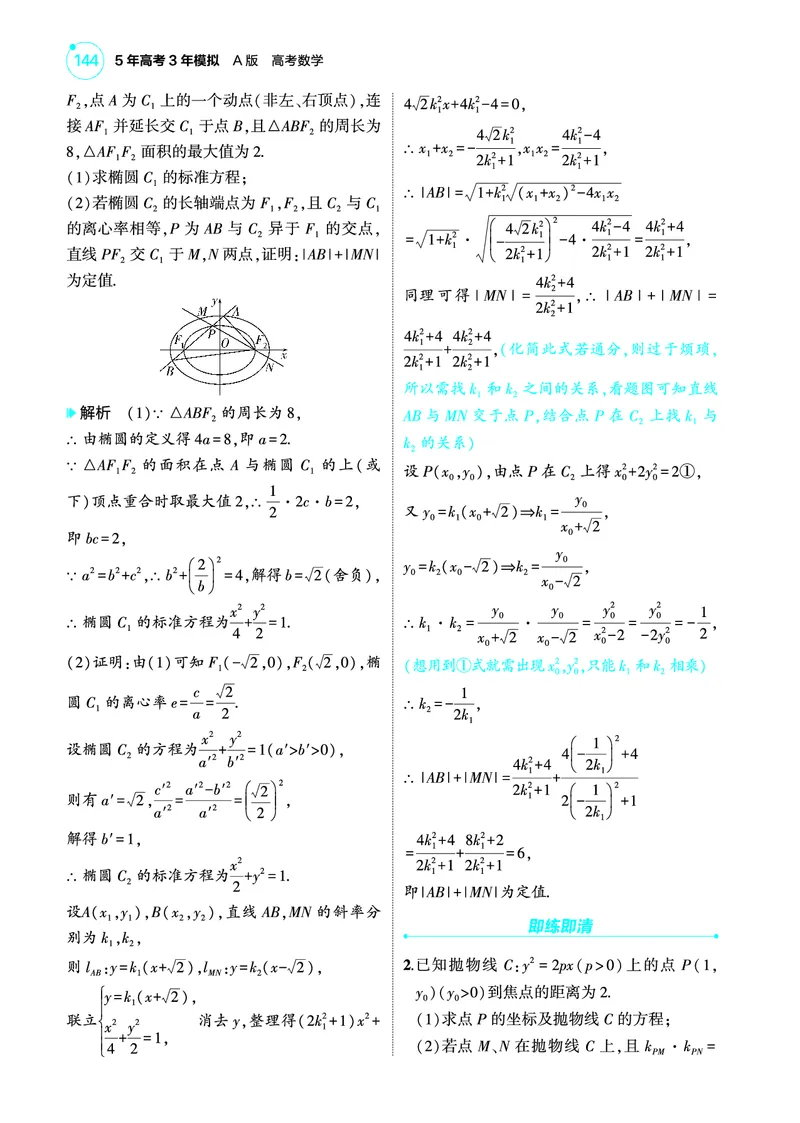 144 5年高考3年模拟 A版 高考数学
F₂,点A为C₁上的一个动点(非左、右顶点),连
接AF₁并延长交C₁于点B,且△ABF₂的周长为
8,△AF₁F₂面积的最大值为2.
(1)求椭圆C₁的标准方程;
(2)若椭圆C₂的长轴端点为F₁,F₂,且C₂与C₁
的离心率相等,P为AB与C₂异于F₁的交点,
直线PF₂交C₁于M,N两点,证明:|AB|+|MN|
为定值.
y
M A
P
F₁ O F₂
x
B N
解析 (1)∵△ABF₂的周长为8,
∴由椭圆的定义得4a=8,即a=2.
∵△AF₁F₂的面积在点A与椭圆C₁的上(或
下)顶点重合时取最大值2,∴1/2·2c·b=2,
即bc=2,
∵a²=b²+c²,∴b²+(2/b)²=4,解得b=√2(舍负),
∴椭圆C₁的标准方程为x²/4+y²/2=1.
(2)证明:由(1)可知F₁(-√2,0),F₂(√2,0),椭
圆C₁的离心率e=c/a=√2/2.
设椭圆C₂的方程为x²/a′²+y²/b′²=1(a′>b′>0),
则有a′=√2,c′²/a′²=(a′²-b′²)/a′²=(√2/2)²,
解得b′=1,
∴椭圆C₂的标准方程为x²/2+y²=1.
设A(x₁,y₁),B(x₂,y₂),直线AB,MN的斜率分
别为k₁,k₂,
则l_AB:y=k₁(x+√2),l_MN:y=k₂(x-√2),
联立{y=k₁(x+√2), x²/4+y²/2=1, 消去y,整理得(2k₁²+1)x²+
4√2k₁²x+4k₁²-4=0,
∴x₁+x₂=-4√2k₁²/(2k₁²+1),x₁x₂=(4k₁²-4)/(2k₁²+1),
∴|AB|=√(1+k₁²)√((x₁+x₂)²-4x₁x₂)
=√(1+k₁²)·√((-4√2k₁²/(2k₁²+1))²-4·(4k₁²-4)/(2k₁²+1))=(4k₁²+4)/(2k₁²+1),
同理可得|MN|=(4k₂²+4)/(2k₂²+1),∴|AB|+|MN|=
(4k₁²+4)/(2k₁²+1)+(4k₂²+4)/(2k₂²+1),(化简此式若通分,则过于烦琐,
所以需找k₁和k₂之间的关系,看题图可知直线
AB与MN交于点P,结合点P在C₂上找k₁与
k₂的关系)
设P(x₀,y₀),由点P在C₂上得x₀²+2y₀²=2①,
又y₀=k₁(x₀+√2)⇒k₁=y₀/(x₀+√2),
y₀=k₂(x₀-√2)⇒k₂=y₀/(x₀-√2),
∴k₁·k₂=y₀/(x₀+√2)·y₀/(x₀-√2)=y₀²/(x₀²-2)=y₀²/(-2y₀²)=-1/2,
(想用到①式就需出现x₀²,y₀²,只能k₁和k₂相乘)
∴k₂=-1/(2k₁),
∴|AB|+|MN|=(4k₁²+4)/(2k₁²+1)+(4(-1/(2k₁))²+4)/(2(-1/(2k₁))²+1)
=(4k₁²+4)/(2k₁²+1)+(8k₁²+2)/(2k₁²+1)=6,
即|AB|+|MN|为定值.
即练即清
2.已知抛物线C:y²=2px(p>0)上的点P(1,
y₀)(y₀>0)到焦点的距离为2.
(1)求点P的坐标及抛物线C的方程;
(2)若点M、N在抛物线C上,且k_PM·k_PN=